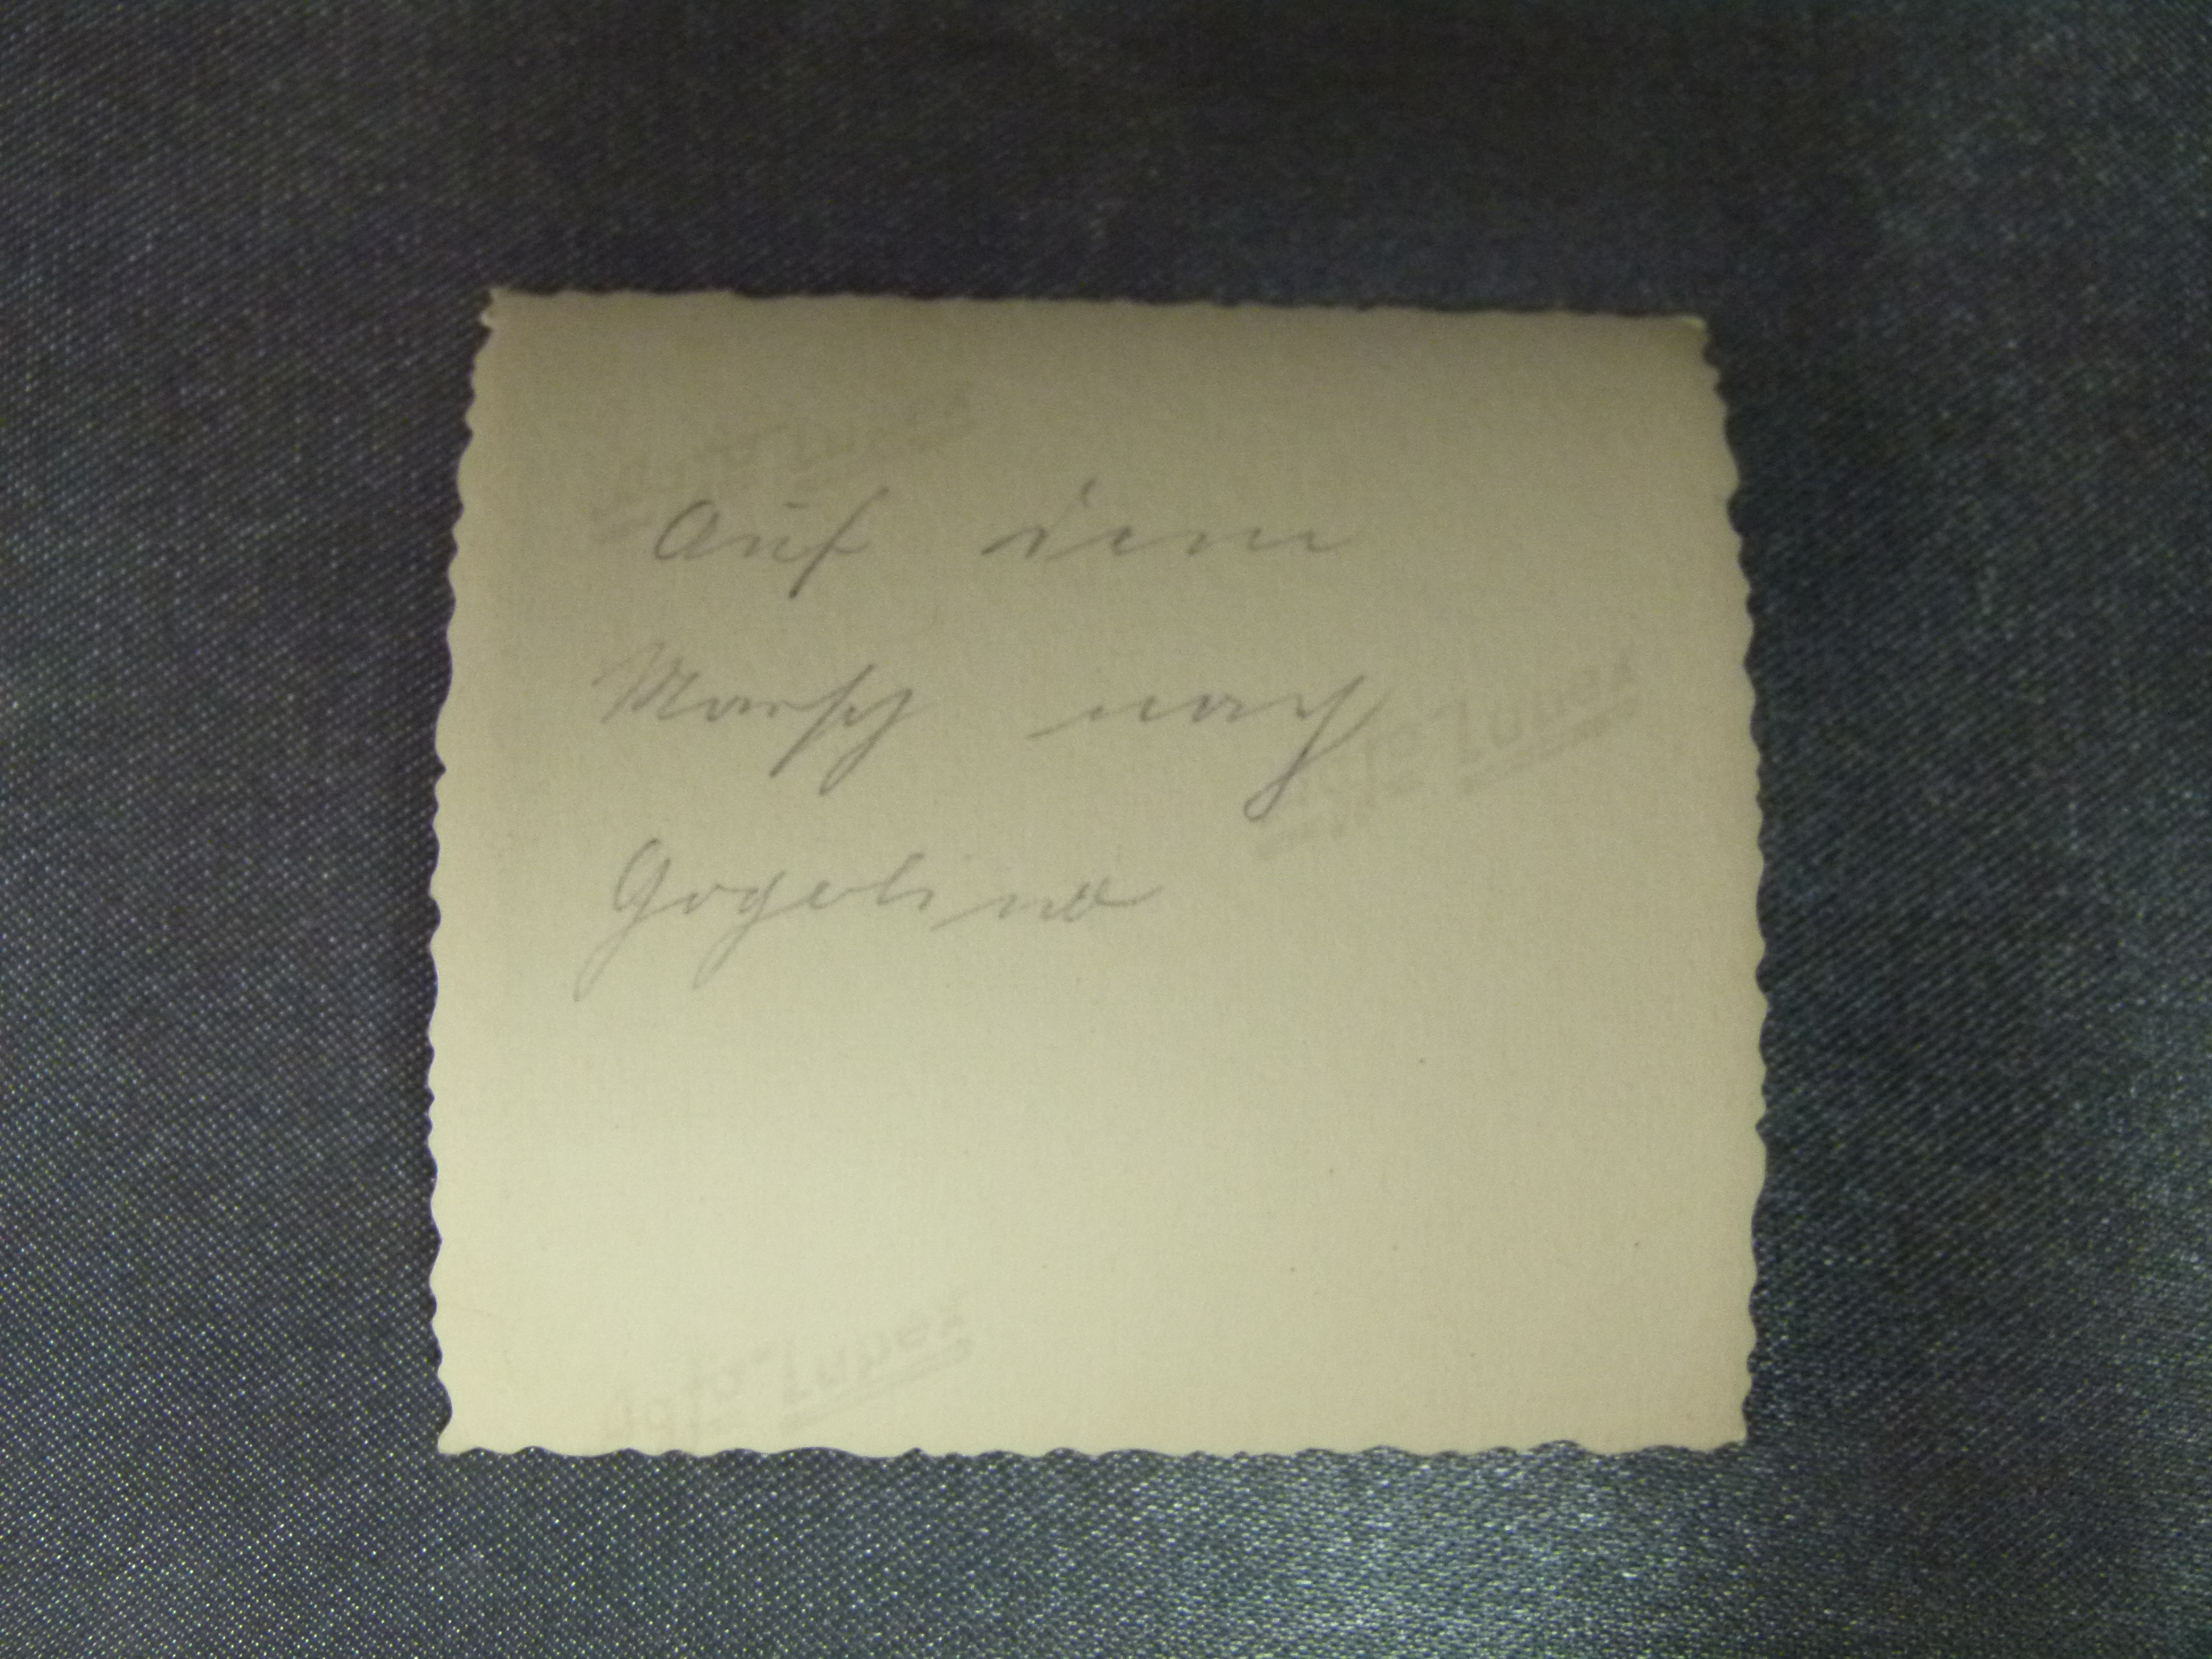 Auf dem
Marsch nach
Gogolino
Agfa Lupex
Agfa Lupex
Agfa Lupex